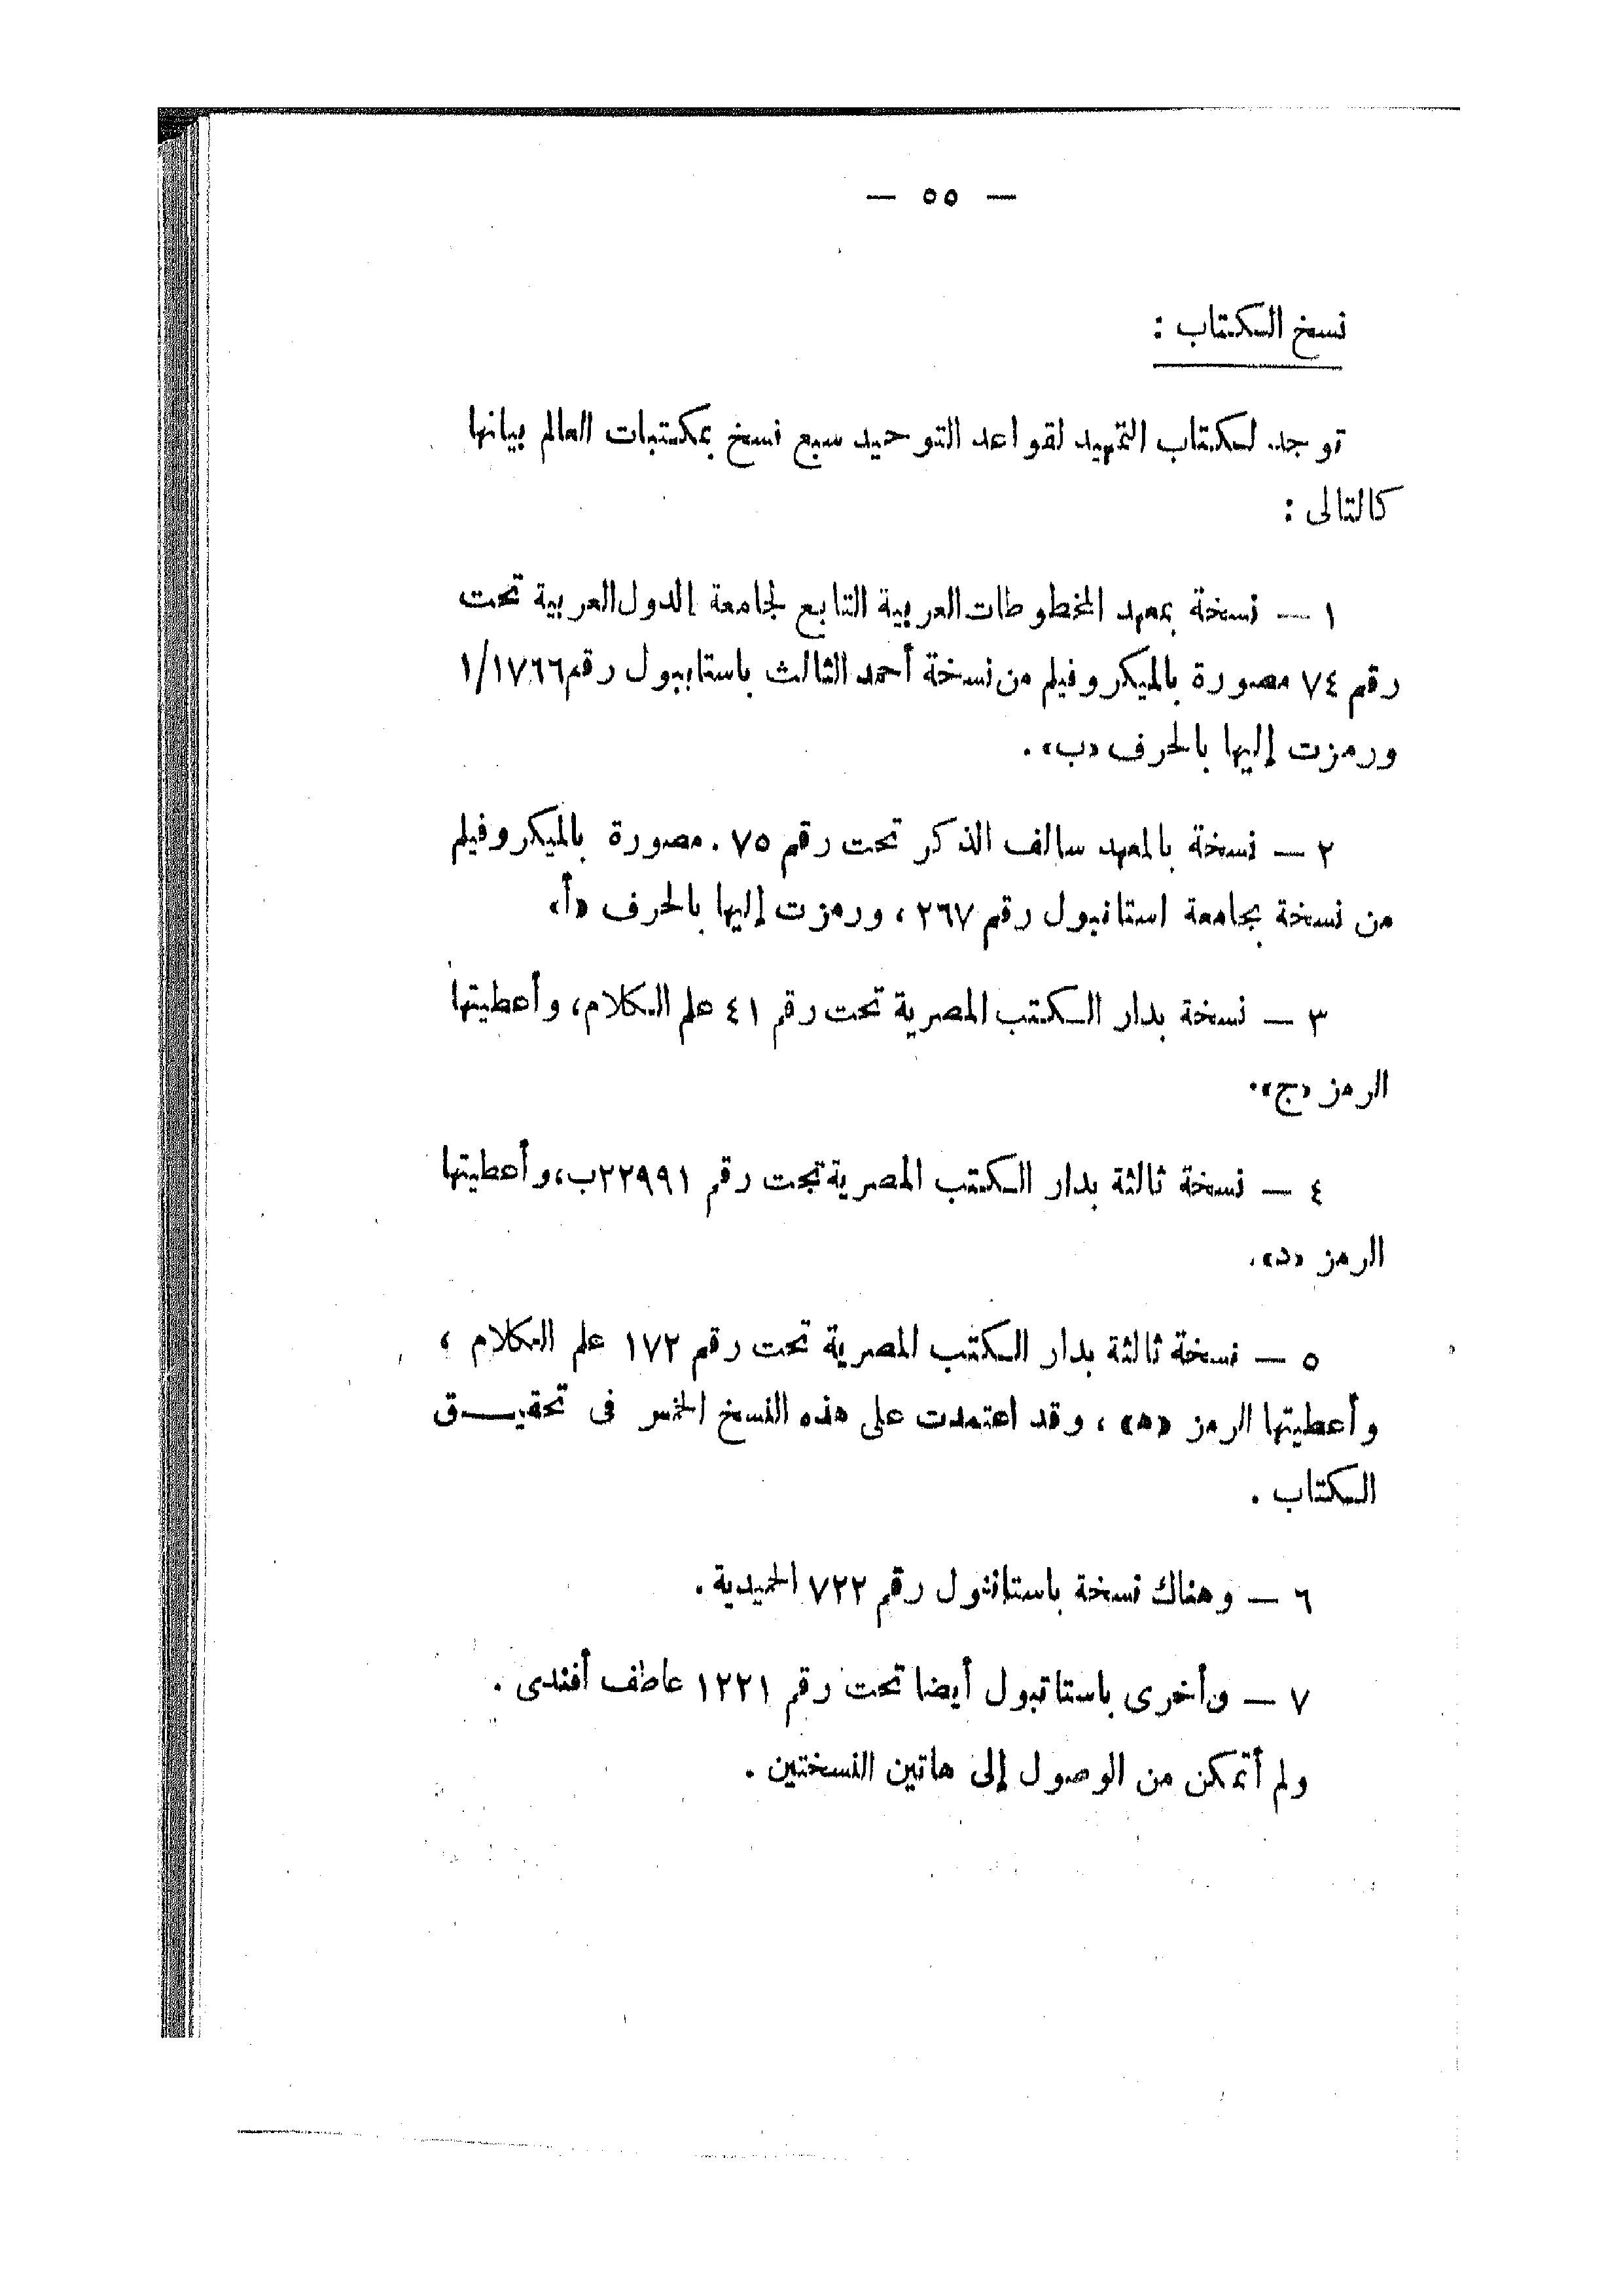 — ٥٥ —
نسخ الكتاب :
توجد لكتاب التمهيد لقواعد التوحيد سبع نسخ بمكتبات العالم بيانها
كالتالى :
١ — نسخة بمعهد المخطوطات العربية التابع لجامعة الدول العربية تحت
رقم ٧٤ مصورة بالميكروفيلم من نسخة أحمد الثالث باستابيول رقم ١/١٧٦٦
ورمزت إليها بالحرف «ب» .
٢ — نسخة بالمعهد سالف الذكر تحت رقم ٧٥ . مصورة بالميكروفيلم
من نسخة بجامعة استانبول رقم ٢٦٧ ، ورمزت إليها بالحرف «أ»
٣ — نسخة بدار الكتب المصرية تحت رقم ٤١ علم الكلام، وأعطيتها
الرمز «ج».
٤ — نسخة ثالثة بدار الكتب المصرية تحت رقم ٢٢٩٩١ب، وأعطيتها
الرمز «د».
٥ — نسخة ثالثة بدار الكتب المصرية تحت رقم ١٧٢ علم الكلام ،
وأعطيتها الرمز «ه» ، وقد اعتمدت على هذه النسخ الخمس فى تحقيـــق
الكتاب .
٦ — وهناك نسخة باستانبول رقم ٧٢٢ الحميدية .
٧ — وأخرى باستانبول أيضا تحت رقم ١٢٢١ عاطف أفندى .
ولم أتمكن من الوصول إلى هاتين النسختين .